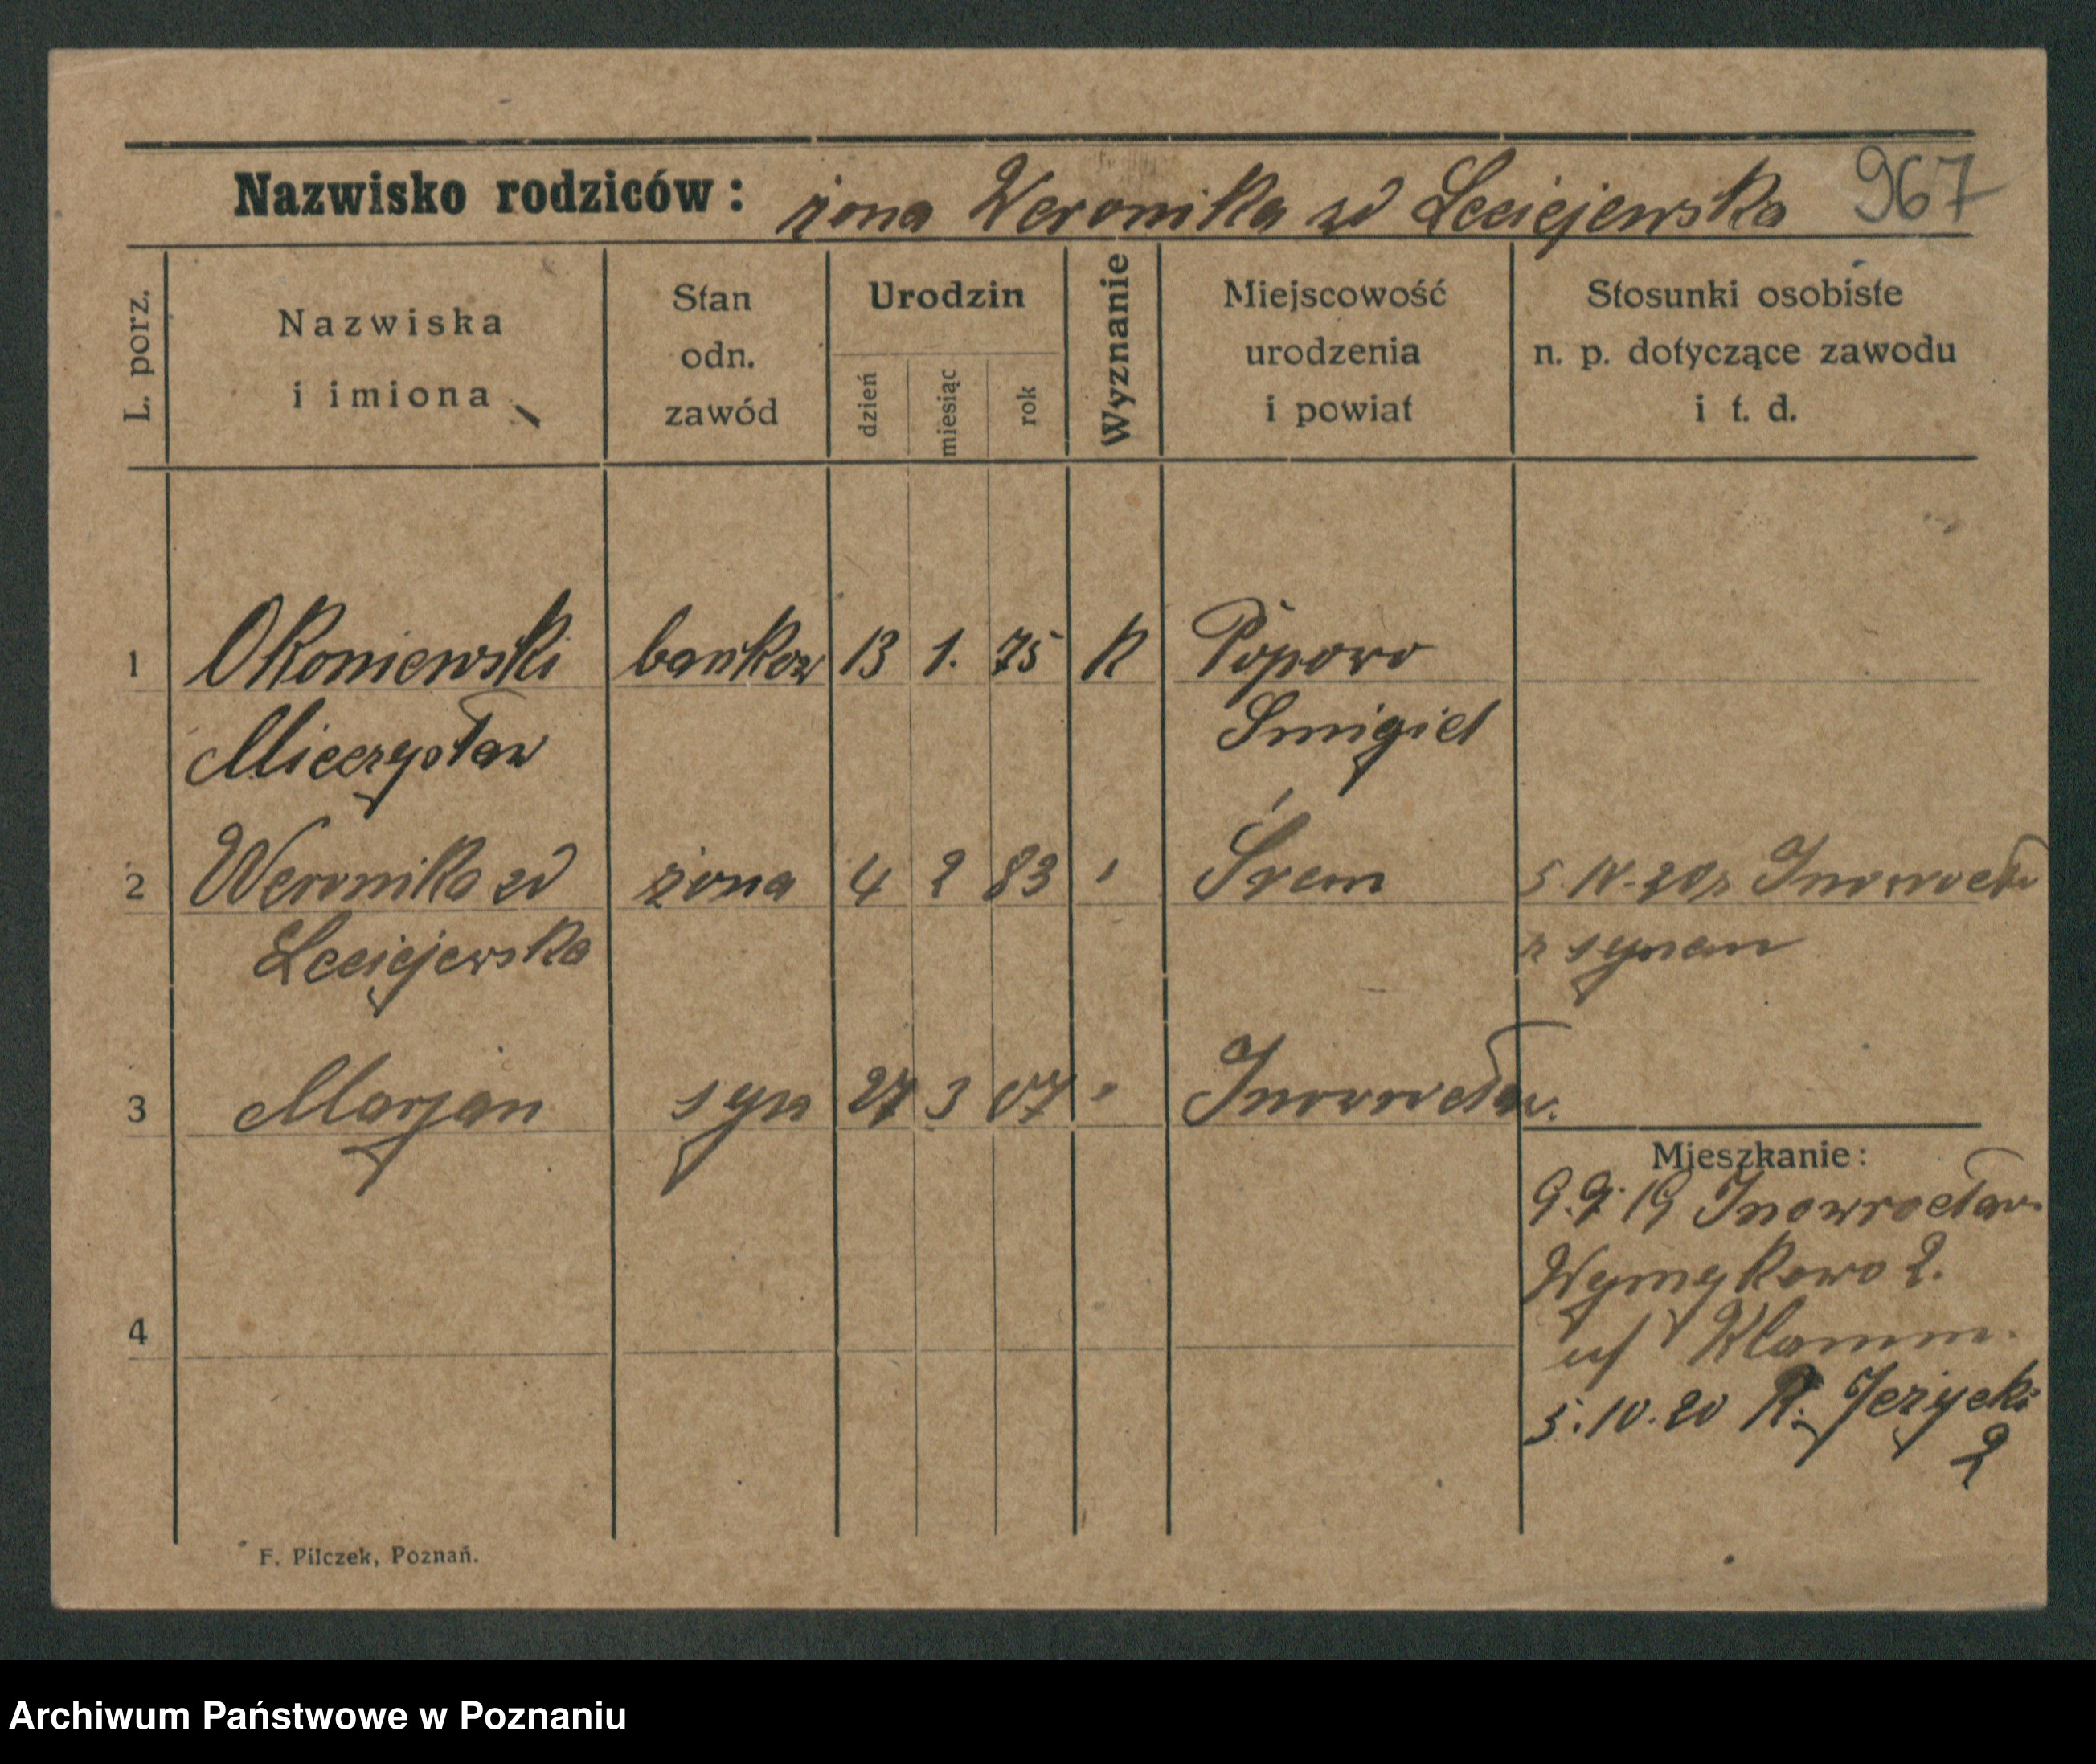 Nazwisko rodziców: żona Weronika zd Leciejewska 967
L. porz.
Nazwiska
i imiona
Stan
odn.
zawód
Urodzin
dzień
miesiąc
rok
Wyznanie
Miejscowość
urodzenia
i powiat
Stosunki osobiste
n. p. dotyczące zawodu
i t. d.
1 Okoniewski bankow 13 1. 75 K Popowo
Mieczysław Smigiel
2 Weronika zd żona 4 2 83 " Śrem 5.10.20 z Inowrocław
Leciejewska z synem
3 Marjan syn 27 3 07 " Inowrocław.
Mieszkanie:
9.9.19 Inowrocław.
2.
4
5.10.20 R. Jeżycki
2
F. Pilczek, Poznań.
Archiwum Państwowe w Poznaniu